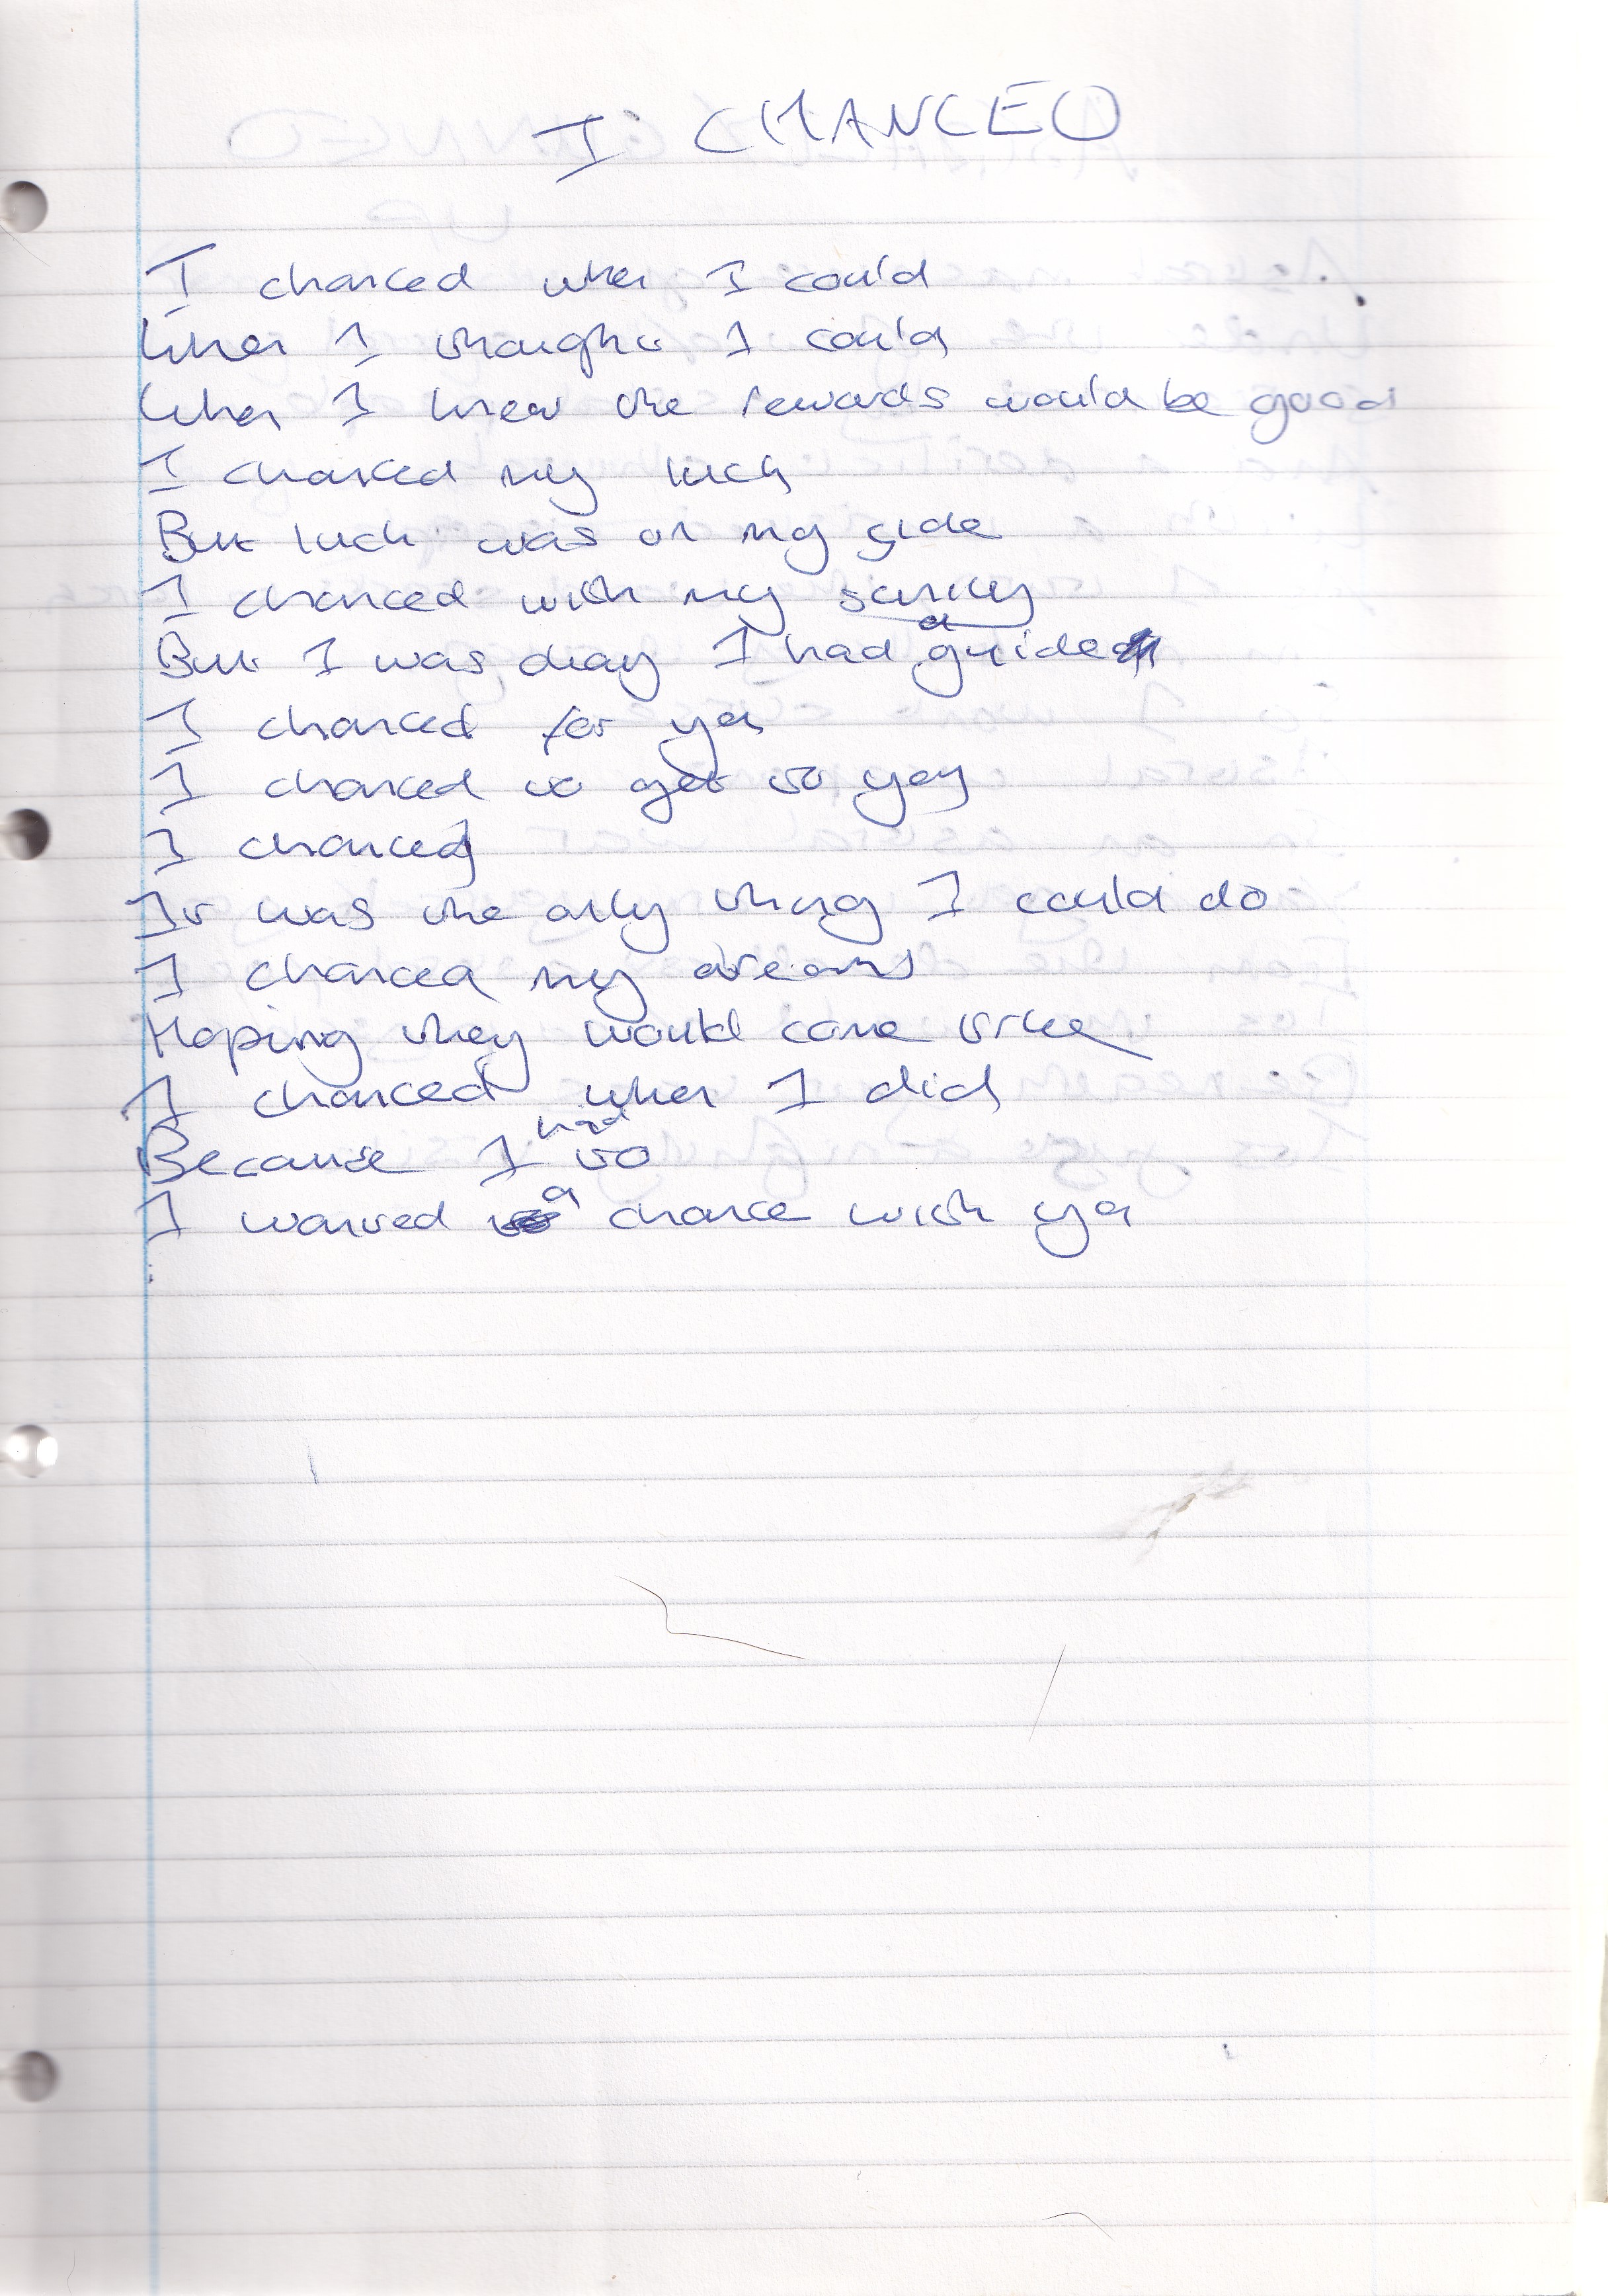 I CHANCED
I chanced when I could
When I thought I could
When I knew the rewards would be good
I chanced my luck
But luck was on my side
I chanced with my sanity
But I was okay I had a guide
I chanced for ya
I chanced to get to you
I chanced
It was the only thing I could do
I chanced my dreams
Hoping they would come true
I chanced when I did
Because I had to
I wanted a chance with ya